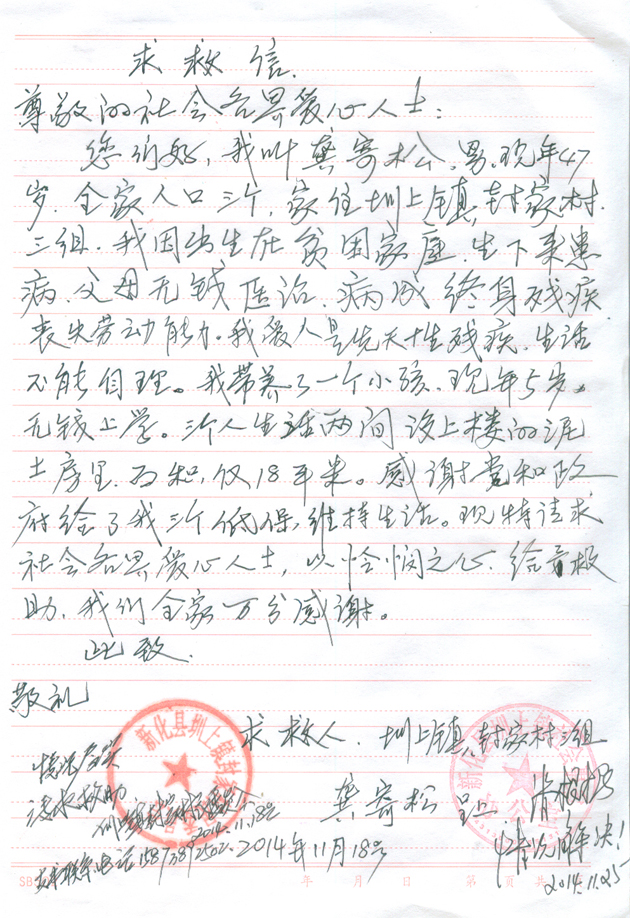 求救信.
尊敬的社会各界爱心人士:
您们好,我叫龚寄松,男,现年47
岁.全家人口三个,家住圳上镇,封家村.
三组.我因出生在贫困家庭.生下来患
病.父母无钱医治.病成终身残疾.
丧失劳动能力。我爱人是先天性残疾.生活
不能自理。我带养了一个小孩.现年5岁。
无钱上学。三个人生活两间没上楼的泥
土房里.面积仅18平米。感谢党和政
府给了我三个低保,维持生活。现特请求
社会各界爱心人士,以怜悯之心.给予救
助.我们全家万分感谢。
此致.
敬礼
求救人.圳上镇,封家村三组
龚寄松
情况属实
请求救助
2014.11.18号
2014年11月18号
新化县圳上镇封家村
情况属实
请
解决!
2014.11.25
支书联系电话
SB
年 月 日 第 页 共